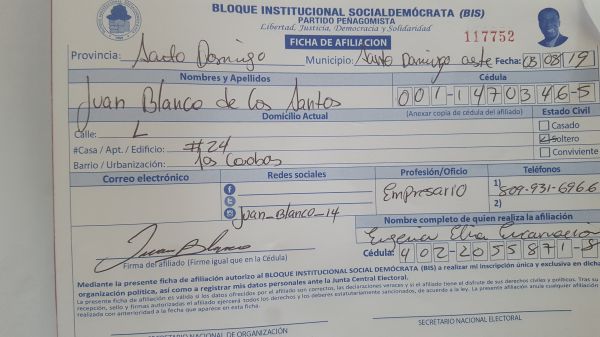 BLOQUE INSTITUCIONAL SOCIALDEMÓCRATA (BIS)
PARTIDO PENAGOMISTA
Libertad, Justicia, Democracia y Solidaridad
FICHA DE AFILIACION
117752
Provincia: Santo Domingo Municipio: Santo Domingo este Fecha: 03/08/19
Nombres y Apellidos Cédula
Juan Blanco de Los Santos 001-1470346-5
Domicilio Actual (Anexar copia de cédula del afiliado) Estado Civil
Calle: L Casado
#Casa / Apt. / Edificio: #24 Soltero
Barrio / Urbanización: Los Conviviente
Correo electrónico Redes sociales Profesión/Oficio Teléfonos
Empresario 1) 809-931-6966
2)
Juan_Blanco_14 Nombre completo de quien realiza la afiliación
Juan Blanco Eugenia Elia Encarnación
Firma del afiliado (Firme igual que en la Cédula) Cédula: 402-2055871-8
Mediante la presente ficha de afiliación autorizo al BLOQUE INSTITUCIONAL SOCIAL DEMÓCRATA (BIS) a realizar mi inscripción única y exclusiva en dicha
organización política, así como a registrar mis datos personales ante la Junta Central Electoral.
La presente ficha de afiliación es válida si los datos ofrecidos por el afiliado son correctos, las declaraciones veraces y si el afiliado tiene el disfrute de sus derechos civiles y políticos. Tras su
recepción, sello y firmas autorizadas el afiliado ejercerá todos los derechos y los deberes estatutariamente sancionados, de acuerdo a la ley. La presente afiliación anula cualquier afiliación
realizada con anterioridad a la fecha que aparece en esta ficha.
SECRETARIO NACIONAL DE ORGANIZACIÓN SECRETARIO NACIONAL ELECTORAL